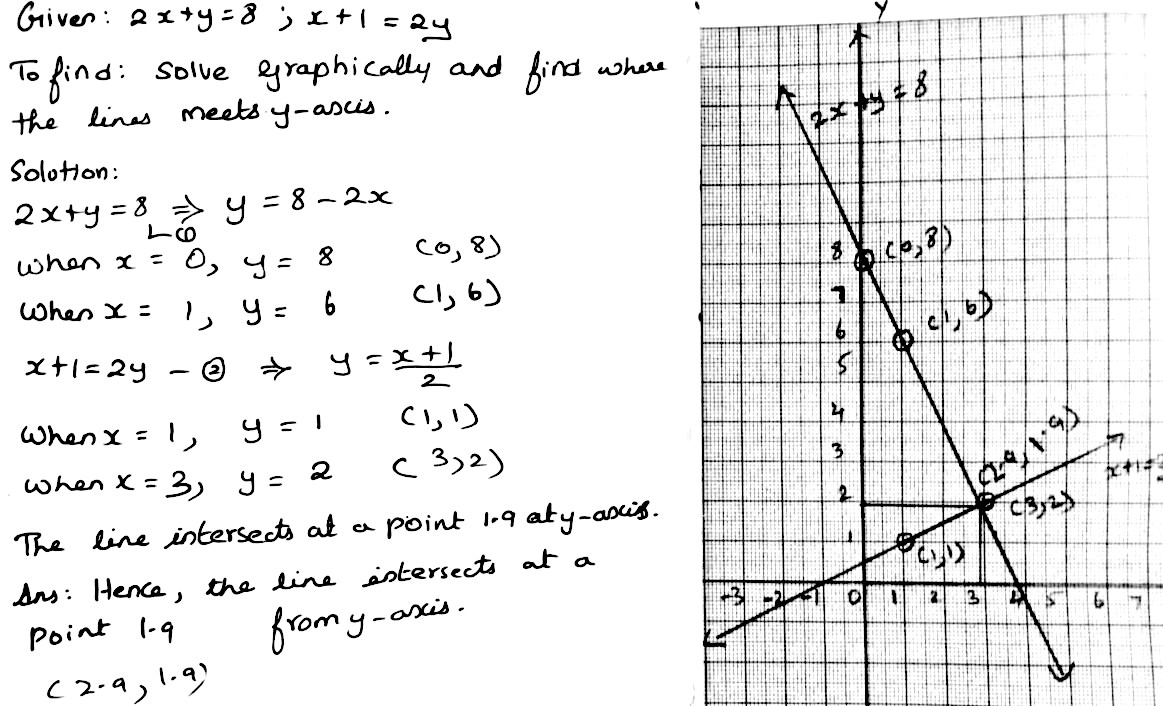 Given: 2x+y=8 ; x+1=2y
To find: Solve graphically and find where
the lines meets y-axis.
Solution:
2x+y=8 ⇒ y = 8-2x
①
when x = 0, y = 8 (0,8)
when x = 1, y = 6 (1,6)
x+1=2y - ② ⇒ y = x+1/2
when x = 1, y = 1 (1,1)
when x = 3, y = 2 (3,2)
The line intersects at a point 1.9 at y-axis.
Ans: Hence, the line intersects at a
point 1.9 from y-axis.
(2.9, 1.9)
Y
2x+y=8
8 (0,8)
7
6 (1,6)
5
4
3 (2.9, 1.9)
x+1=
2 (3,2)
1 (1,1)
-3 -2 -1 0 1 2 3 4 5 6 7